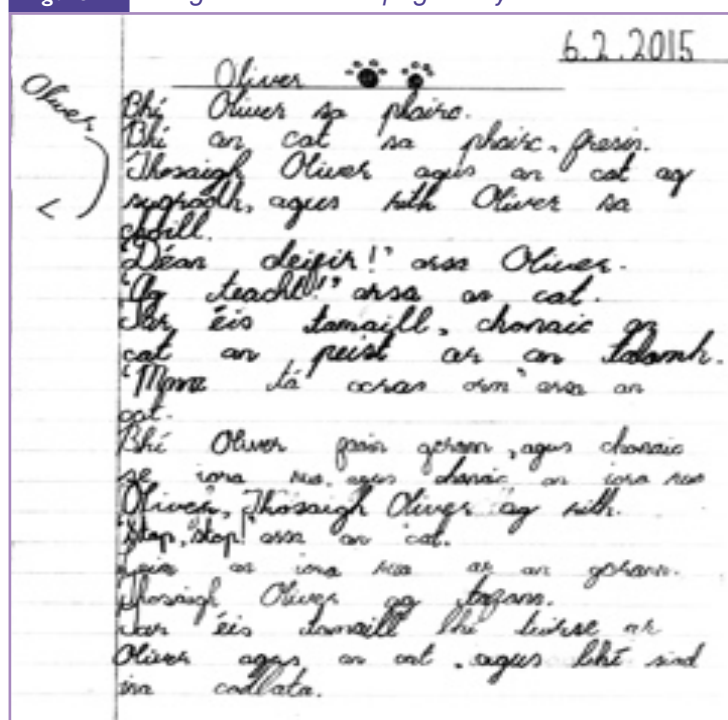 6.2.2015
Oliver
Oliver
Bhí Oliver sa pháirc.
Bhí an cat sa pháirc, freisin.
Thosaigh Oliver agus an cat ag
sugradh, agus rith Oliver sa
choill.
"Déan deifir!" arsa Oliver.
"Ag teacht!" arsa an cat.
Tar éis tamaill, chonaic an
cat an peist ar an talamh.
"Mmm tá ocras orm" arsa an
cat.
Bhí Oliver gcrann, agus chonaic
sé iora rua, agus chonaic an iora rua
Oliver, Thosaigh Oliver ag rith.
"Stop, stop!" arsa an cat.
Léim an iora rua ar an gcrann.
Thosaigh Oliver ag tafann.
Tar éis tamaill bhí tuirse ar
Oliver agus an cat, agus bhí siad
ina codlata.